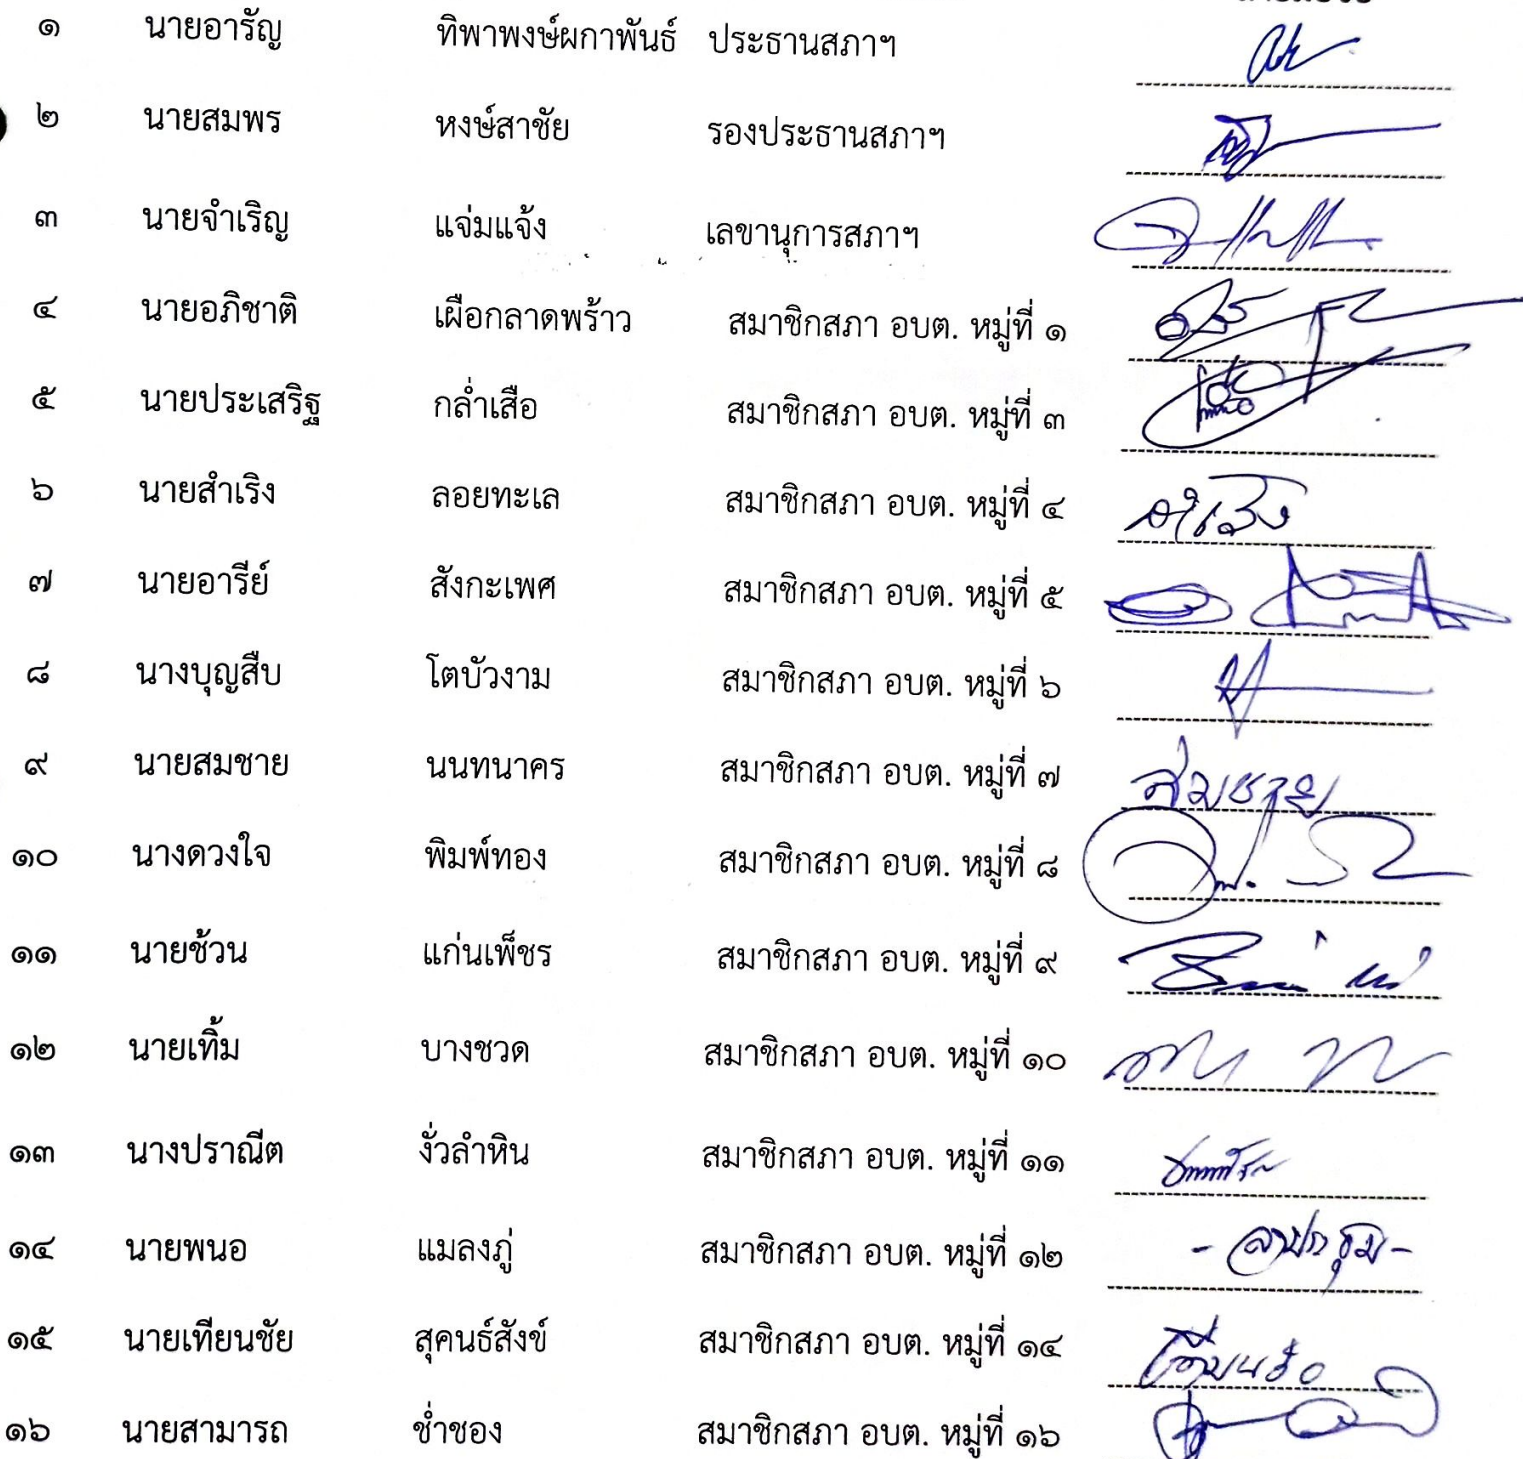 ๑ นายอารัญ ทิพาพงษ์ผกาพันธ์ ประธานสภาฯ
๒ นายสมพร หงษ์สาชัย รองประธานสภาฯ
๓ นายจำเริญ แจ่มแจ้ง เลขานุการสภาฯ
๔ นายอภิชาติ เผือกลาดพร้าว สมาชิกสภา อบต. หมู่ที่ ๑
๕ นายประเสริฐ กล่ำเสือ สมาชิกสภา อบต. หมู่ที่ ๓
๖ นายสำเริง ลอยทะเล สมาชิกสภา อบต. หมู่ที่ ๔
๗ นายอารีย์ สังกะเพศ สมาชิกสภา อบต. หมู่ที่ ๕
๘ นางบุญสืบ โตบัวงาม สมาชิกสภา อบต. หมู่ที่ ๖
๙ นายสมชาย นนทนาคร สมาชิกสภา อบต. หมู่ที่ ๗ สมชาย
๑๐ นางดวงใจ พิมพ์ทอง สมาชิกสภา อบต. หมู่ที่ ๘
๑๑ นายช้วน แก่นเพ็ชร สมาชิกสภา อบต. หมู่ที่ ๙
๑๒ นายเทิ้ม บางชวด สมาชิกสภา อบต. หมู่ที่ ๑๐
๑๓ นางปราณีต งั่วลำหิน สมาชิกสภา อบต. หมู่ที่ ๑๑
๑๔ นายพนอ แมลงภู่ สมาชิกสภา อบต. หมู่ที่ ๑๒ - ลาประชุม -
๑๕ นายเทียนชัย สุคนธ์สังข์ สมาชิกสภา อบต. หมู่ที่ ๑๔
๑๖ นายสามารถ ช่ำชอง สมาชิกสภา อบต. หมู่ที่ ๑๖